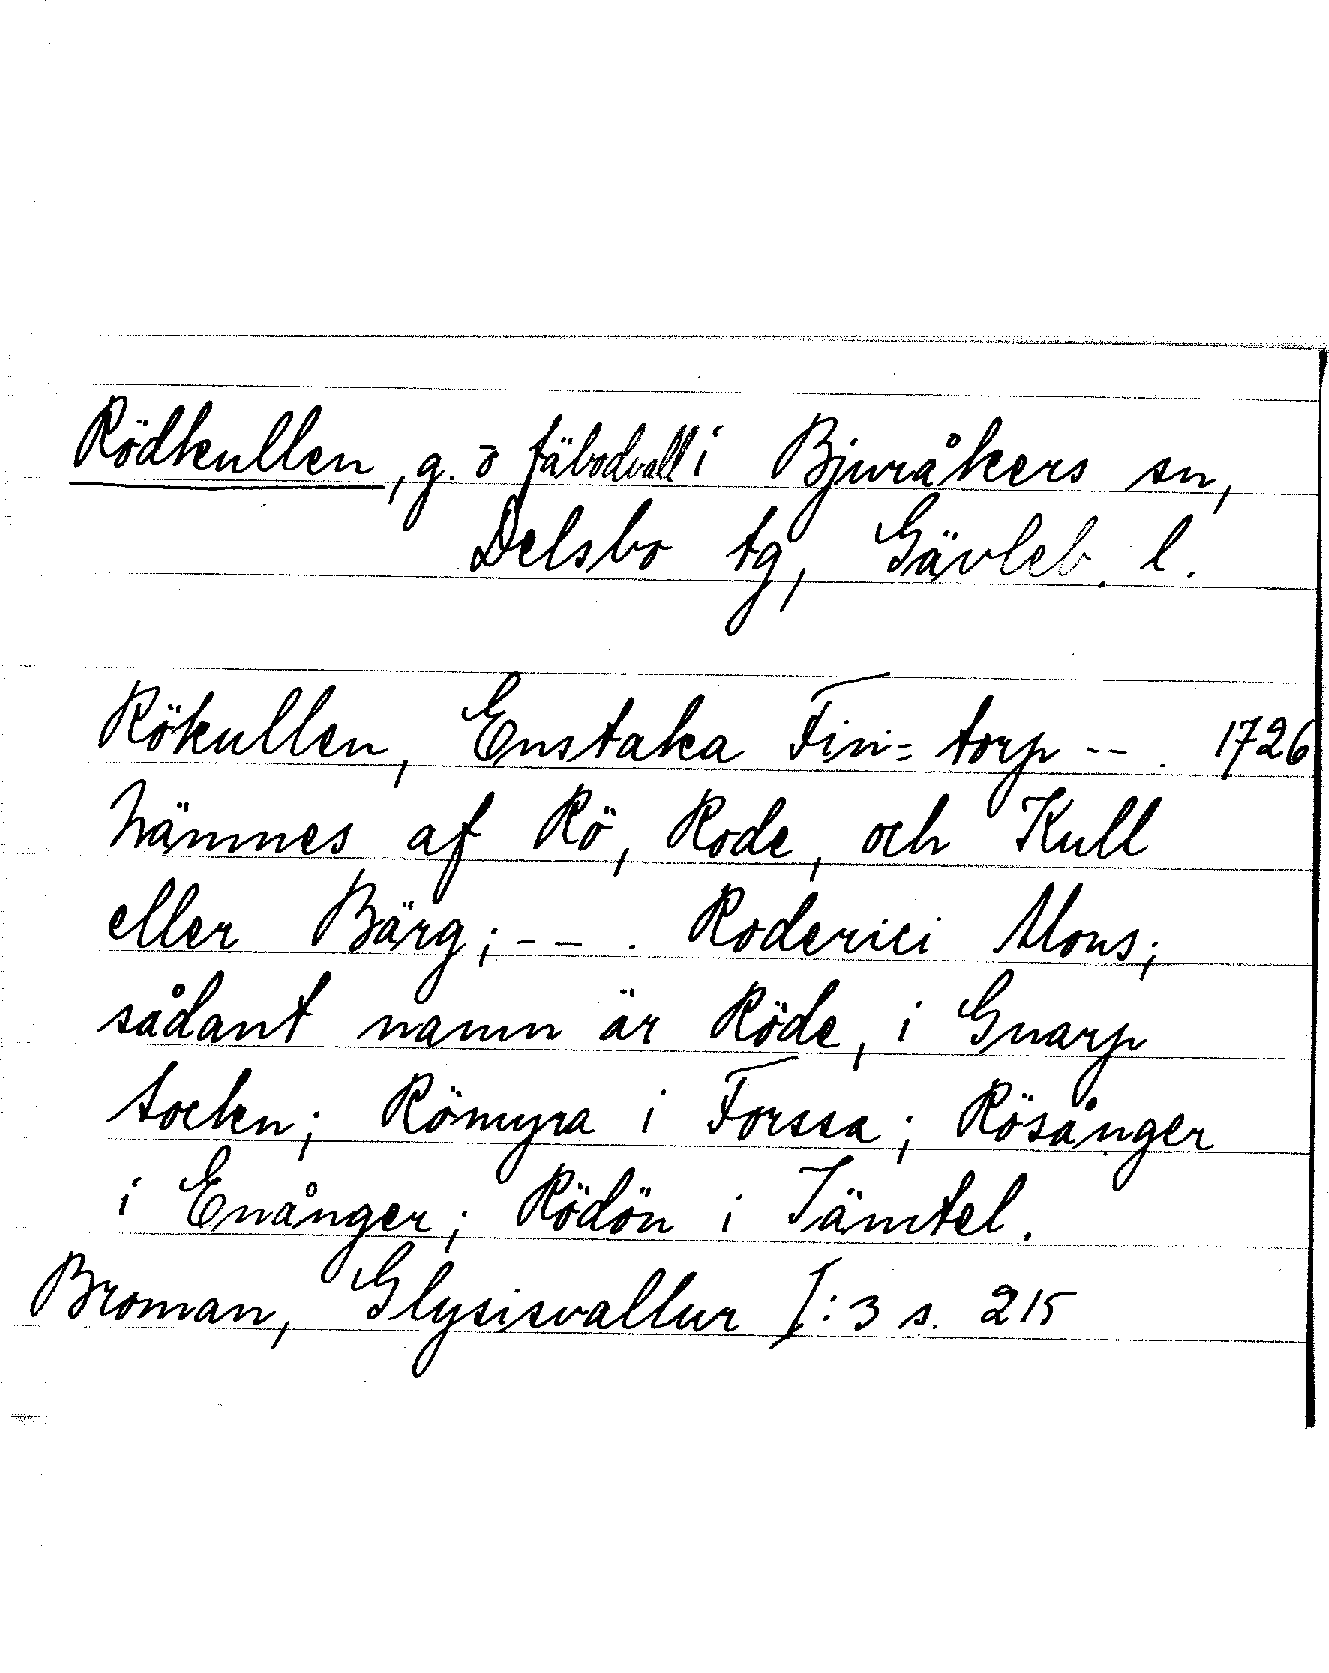 Rödkullen, g. o fäbodvall i Bjuråkers sn,
Delsbo tg, Gävleb. l.
Rökullen, Enstaka Fin= torp --. 1726
Nämnes af Rö, Rode, och Kull
eller Bärg; --. Roderici Mons;
sådant namn är Röde, i Gnarp
socken; Römyra i Forssa; Rösånger
i Enånger; Rödön i Jämtel.
Broman, Glysisvallur I:3 s. 215